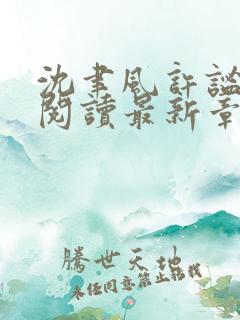 沈聿风許謐
閱讀最新章
騰世天地
未经同意禁止转载